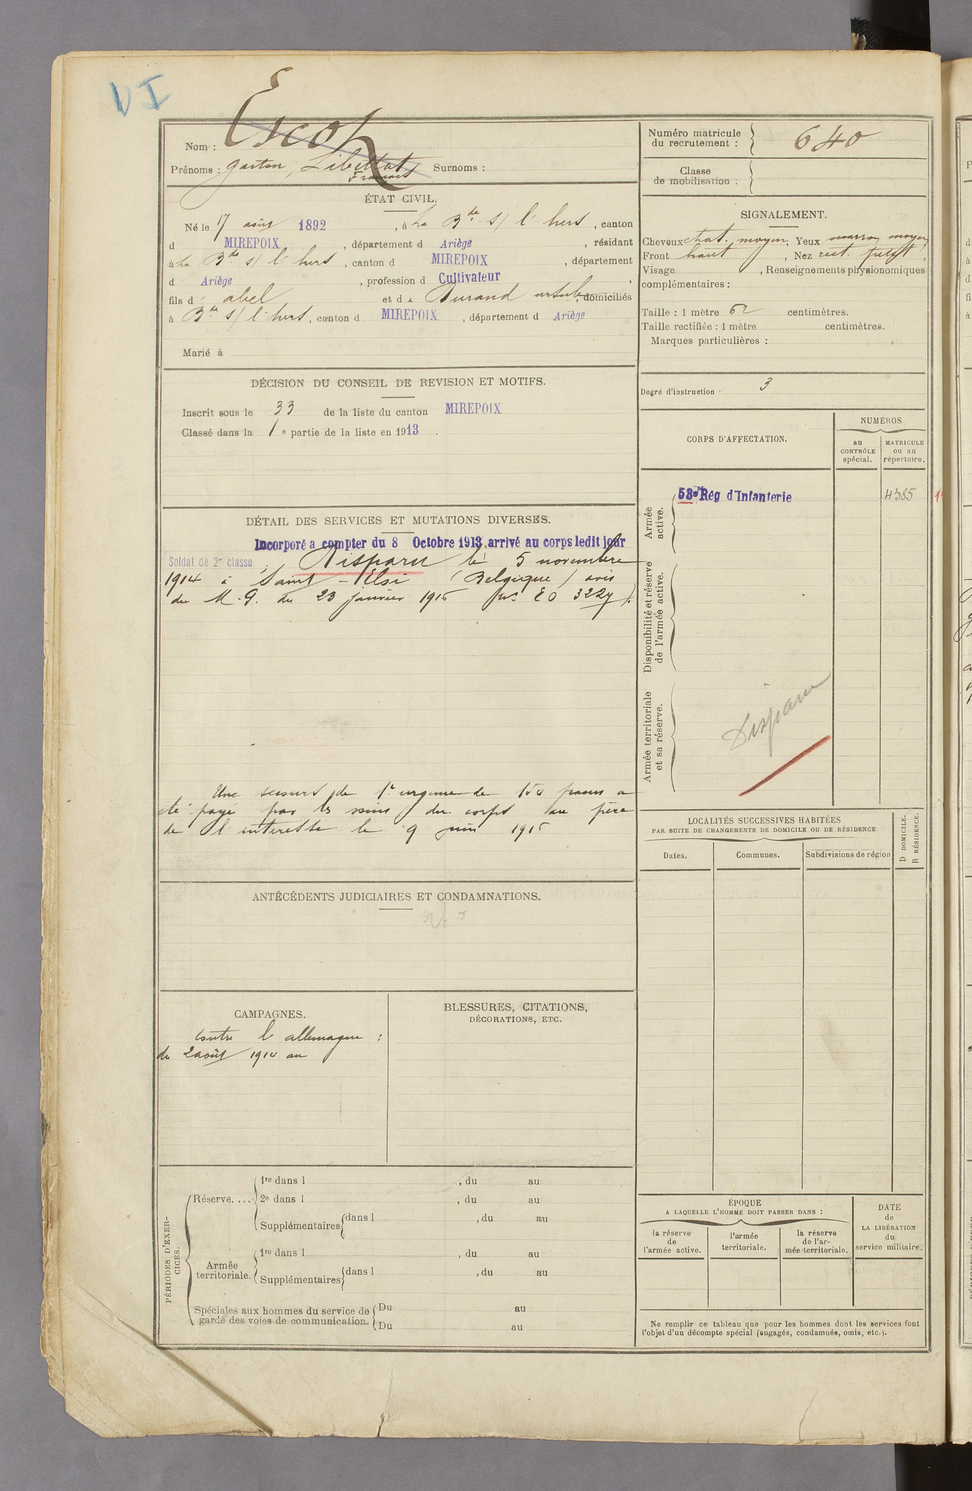 DI
Nom : Escoh
Prénoms : gaston, Libéttat François Surnoms :
Numéro matricule du recrutement : 640
Classe de mobilisation :
ÉTAT CIVIL.
Né le 17 août 1892, à La Bde s/ l'hers, canton
d MIREPOIX, département d Ariège, résidant
à La Bde s/ l'hers, canton d MIREPOIX, département
d Ariège, profession d Cultivateur,
fils d' abel et de Durand, domiciliés
à Bde s/ l'hers, canton d MIREPOIX, département d Ariège
Marié à
SIGNALEMENT.
Cheveux chat. moyen, Yeux marron moyen,
Front haut, Nez rect.
Visage , Renseignements physionomiques
complémentaires :
Taille : 1 mètre 62 centimètres.
Taille rectifiée : 1 mètre centimètres.
Marques particulières :
Degré d'instruction 3
DÉCISION DU CONSEIL DE REVISION ET MOTIFS.
Inscrit sous le 33 de la liste du canton MIREPOIX
Classé dans la 1e partie de la liste en 1913.
DÉTAIL DES SERVICES ET MUTATIONS DIVERSES.
Incorporé a compter du 8 Octobre 1913, arrivé au corps ledit jour
Soldat de 2e classe. Disparu le 5 novembre
1914 à Saint-Elsi (Belgique) avis
du M.G. du 23 janvier 1915
Une secours de 1e urgence de 150 francs a
été payé par les soins du corps au père
de l'interesse le 9 juin 1915
CORPS D'AFFECTATION.
NUMÉROS
au CONTRÔLE spécial.
MATRICULE ou au répertoire.
Armée active.
58e Rég d'Infanterie
4385
Disponibilité et réserve de l'armée active.
Armée territoriale et sa réserve.
Disparu
LOCALITÉS SUCCESSIVES HABITÉES
PAR SUITE DE CHANGEMENTS DE DOMICILE OU DE RÉSIDENCE
Dates.
Communes.
Subdivisions de région
D DOMICILE.
R RÉSIDENCE.
ANTÉCÉDENTS JUDICIAIRES ET CONDAMNATIONS.
CAMPAGNES.
Contre l'allemagne :
du 2 août 1914 au
BLESSURES, CITATIONS,
DÉCORATIONS, ETC.
PÉRIODES D'EXERCICES.
Réserve....
1re dans l , du au
2e dans l , du au
Supplémentaires dans l , du au
Armée territoriale.
1re dans l , du au
Supplémentaires dans l , du au
Spéciales aux hommes du service de garde des voies de communication.
Du au
Du au
ÉPOQUE
A LAQUELLE L'HOMME DOIT PASSER DANS :
la réserve de l'armée active.
l'armée territoriale.
la réserve de l'armée territoriale.
DATE de LA LIBÉRATION du service militaire.
Ne remplir ce tableau que pour les hommes dont les services font
l'objet d'un décompte spécial (engagés, condamnés, omis, etc.).